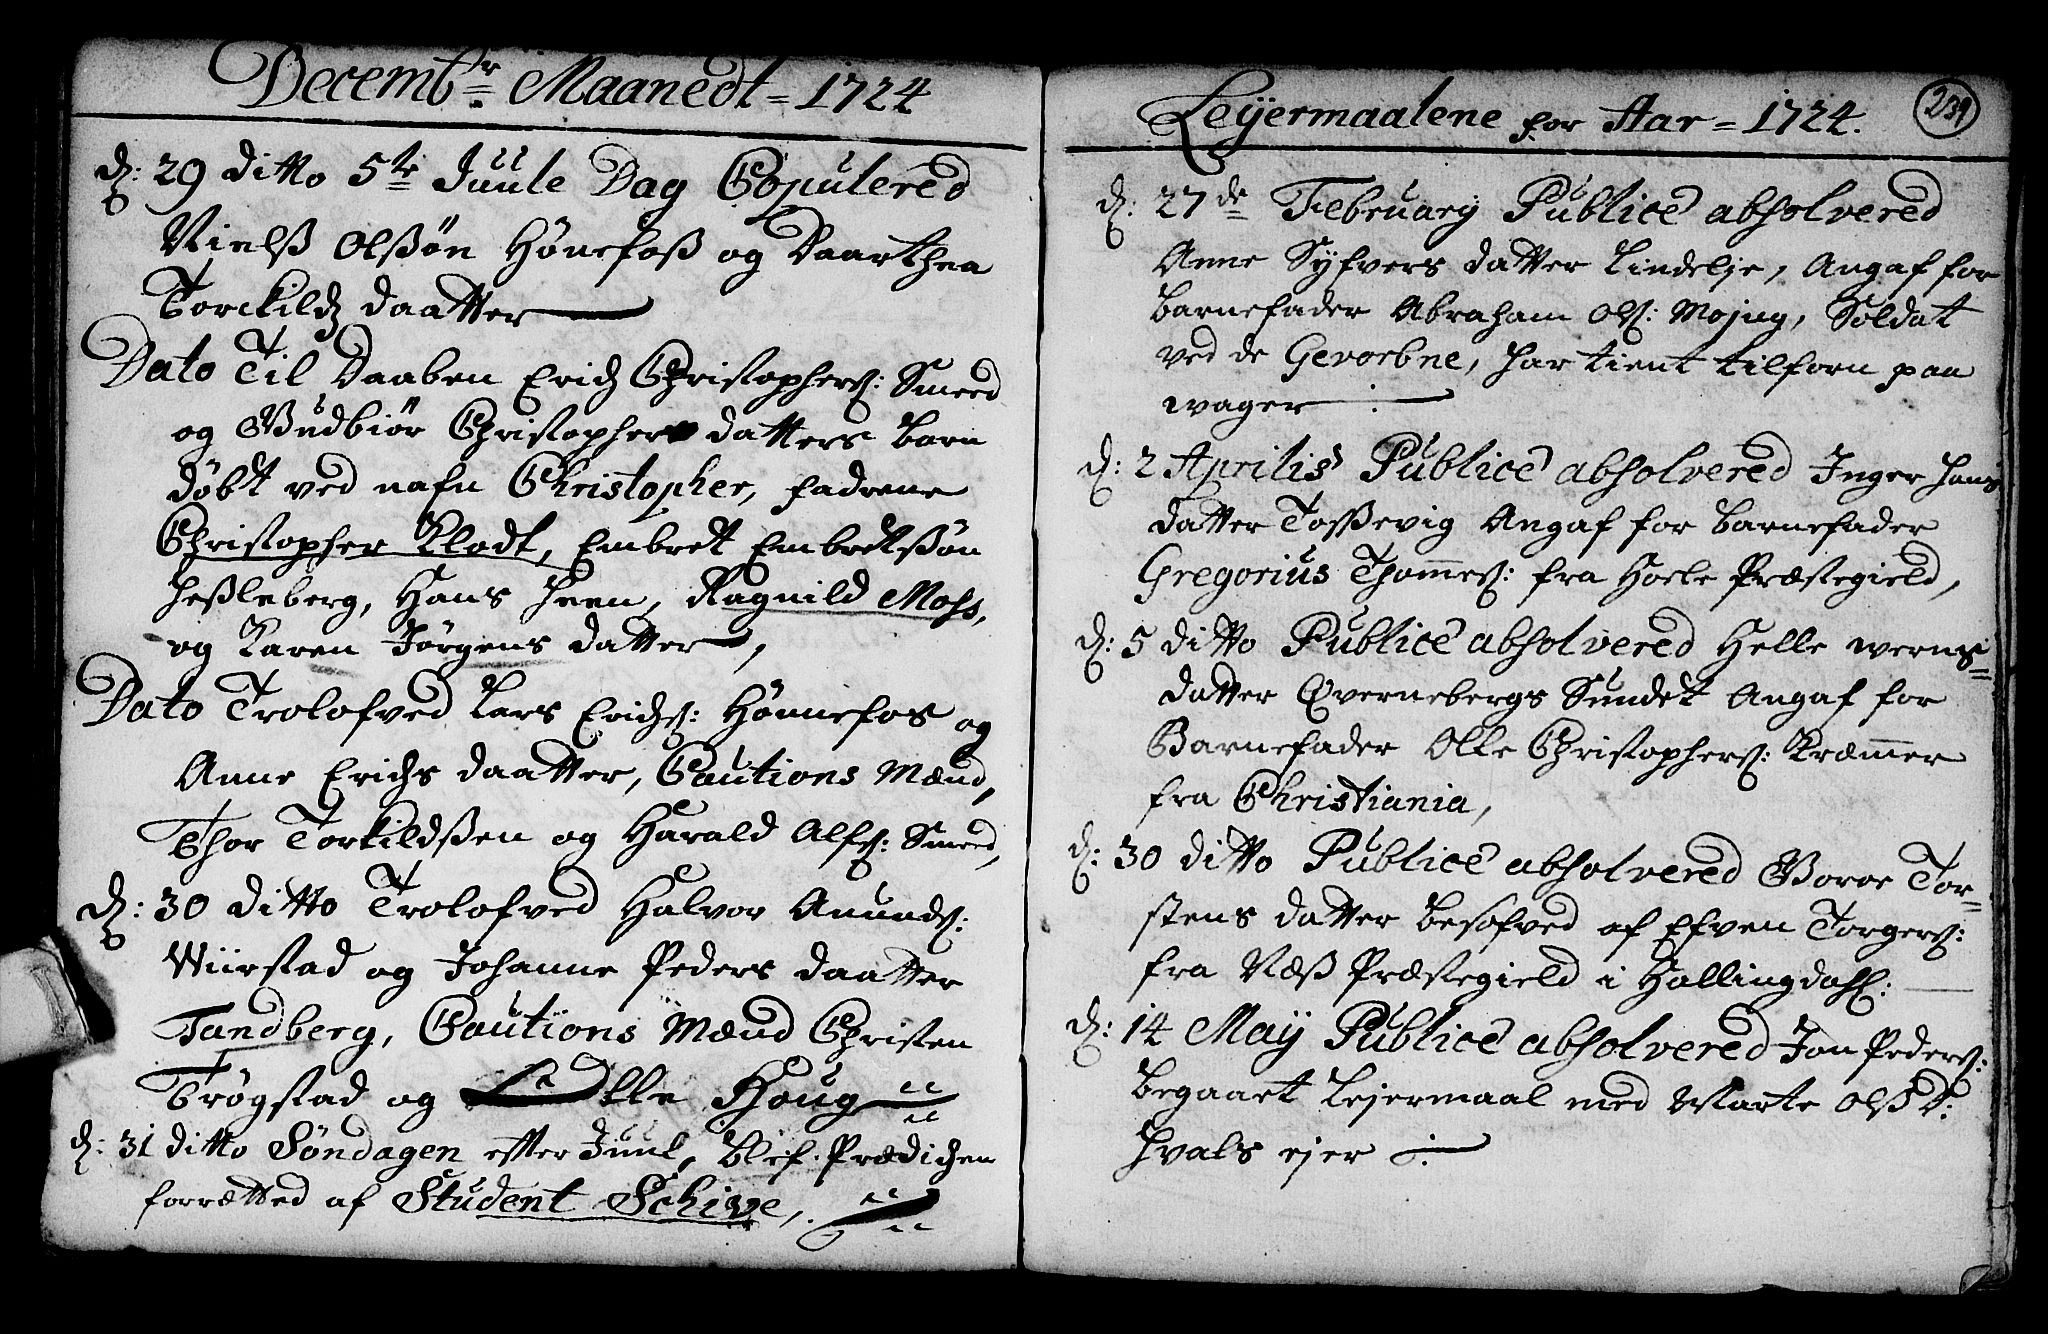 Decembr Maanedt = 1724
d: 29 ditto 5te Juule Dag Copulered
Nielß Olßøn Hønefoß og Daarthea
Torckilds daatter
Dato Til Daaben Erich Christophers: Smeed
og Gudbiør Christophers datters barn
døbt ved nafn Christopher, fadrene
Christopher Klodt, Embret Embretsøn
Heßleberg, Hans Heen, Ragnild Moss,
og Karen Jørgens datter,
Dato Trolofved Lars Erichs: Hønnefos og
Anne Erichs daatter, Cautions Mænd,
Thor Torkildsßen og Harald Alfs: Smeed,
d: 30 ditto Trolofved Halvor Anunds:
Wiirstad og Johanne Peders daatter
Tandberg, Cautions Mænd Christen
Trøgstad og Olle Houg
d: 31 ditto Søndagen effter Juul, blef Prædichen
forrætted af Student Schive,
Leyermaalene for Aar = 1724.
239
d: 27de February Publicè absolvered
Anne Syfvers datter Lindelje, Angaf for
barnefader Abraham Ols: Soldat
ved de Gevorbne, har tient tilforn paa
wager
d: 2 Aprilis Publicè absolvered Inger Hans
datter Toßevig Angaf for barnefader
Gregorius Thommes: fra Hoele Præstegield,
d: 5 ditto Publicè absolvered Helle werns=
datter Qvernebergs Sundet Angaf for
Barnefader Olle Christophers: Kræmmer
fra Christiania,
d: 30 ditto Publicè absolvered Goroe Tor=
stens datter besofved af Efven Torgers:
fra Næß Præstegield i Hallingdahl:
d: 14 May Publicè absolvered Jon Peders:
begaaet Lejermaal med Marte Olß D:
Hvals ejer